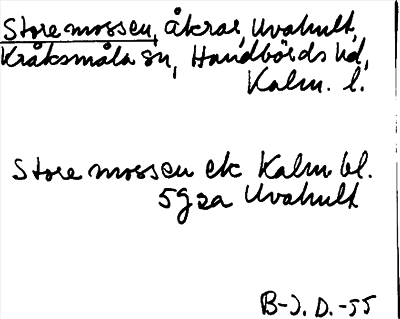 Store mossen, åkrar, Uvahult,
Kråksmåla sn, Handbörds hd,
Kalm. l.
Store mossen ek Kalm bl.
5g2a Uvahult
B-J. D. -55